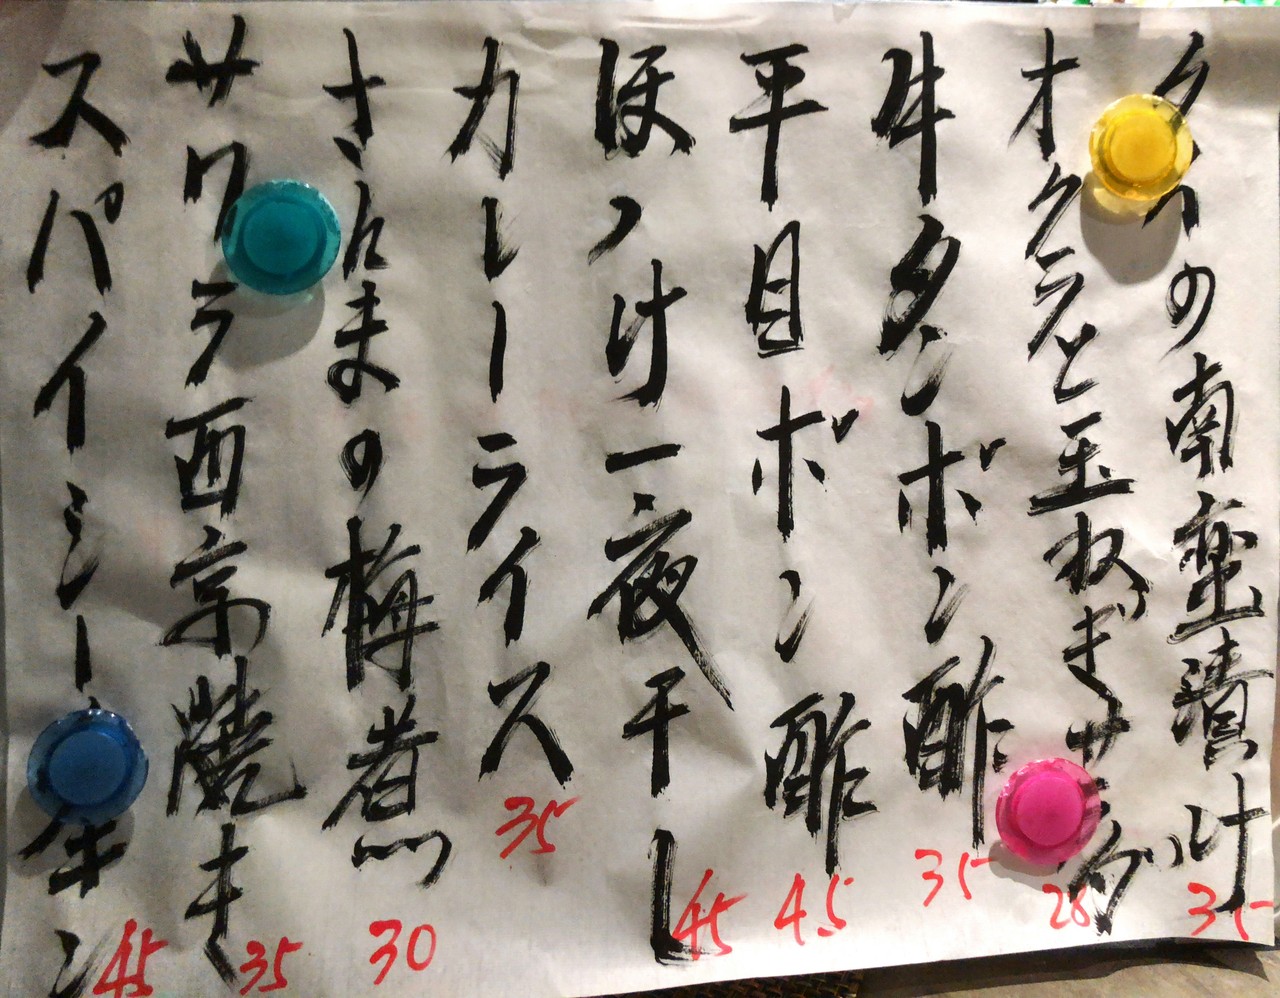 タイの南蛮漬け 35
オクラと玉ねぎサラダ 28
牛タンボン酢 35
平目ボン酢 45
ほッけ一夜干し 45
カレーライス 35
さんまの梅煮 30
サワラ西京焼き 35
スパイシーチキン 45